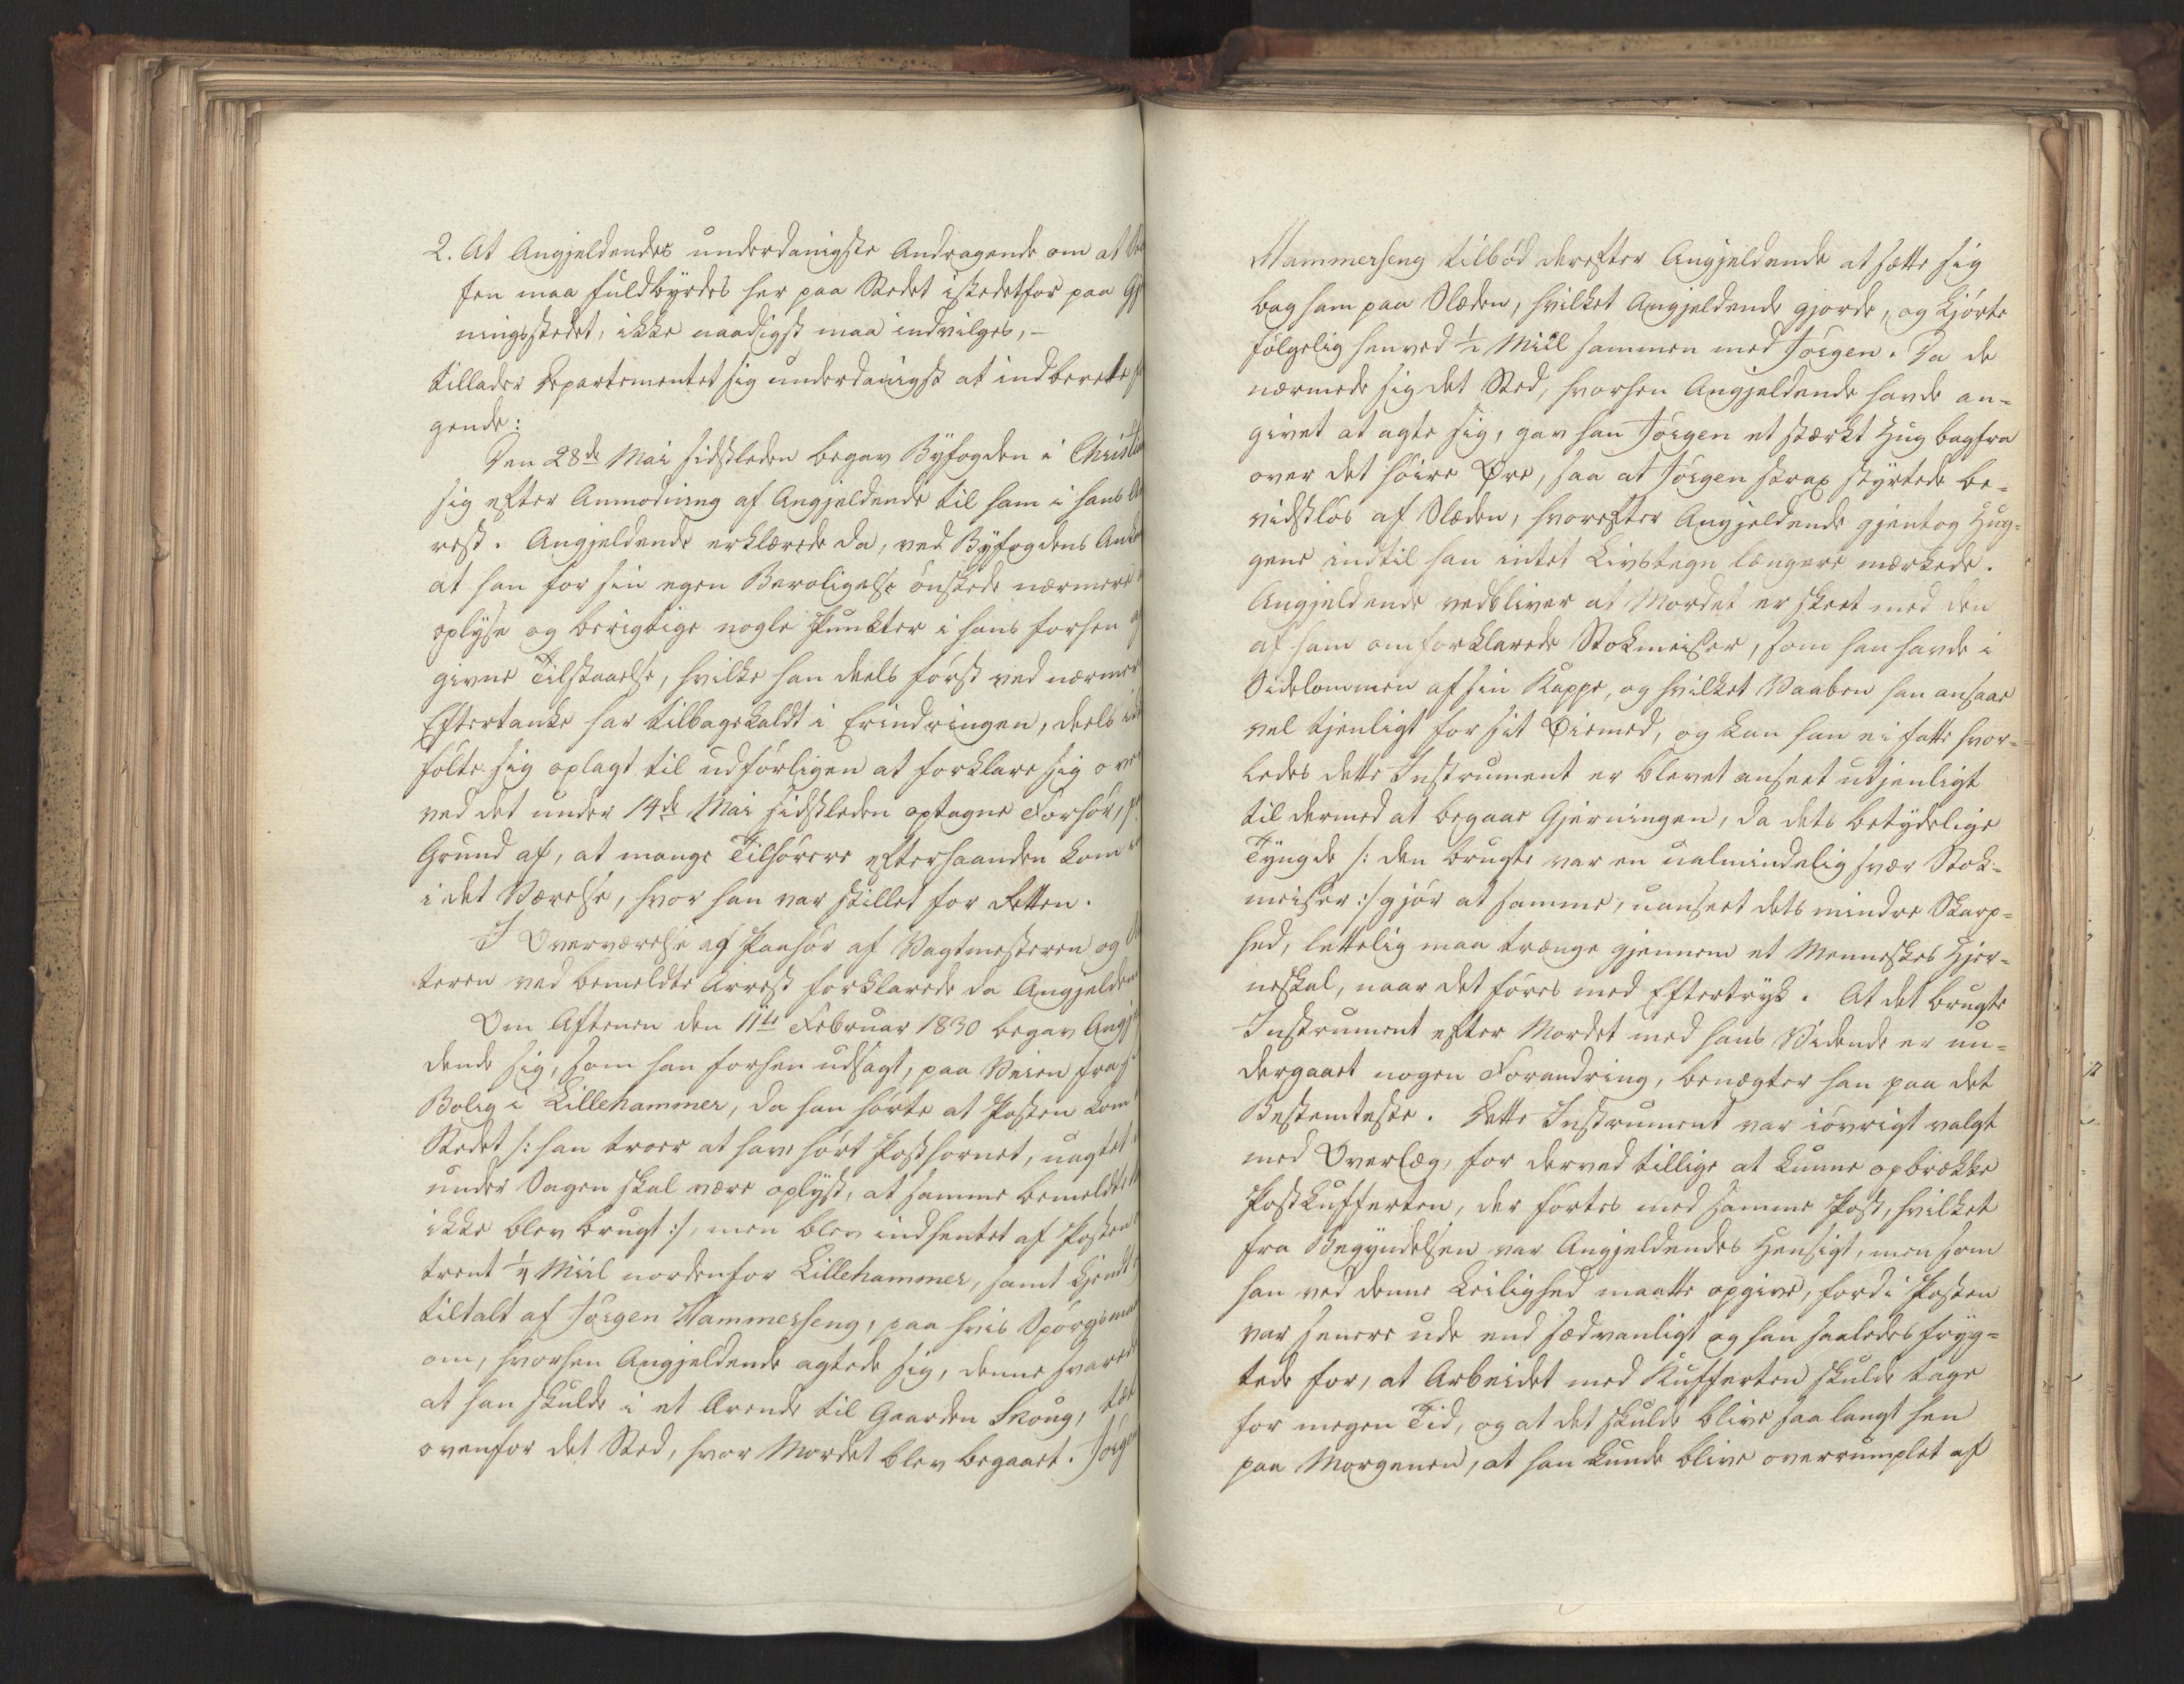 2. At Angjeldendes underdanigste Andragende om at
sen maa fuldbyrdes her paa Stedet istedetfor paa Gj
ningsstedet, ikke naadigst maa indvilges, -
tillader Departementet sig underdanigst at indberette
gende:
Den 28de Mai sidstleden begav Byfogden i Christia
sig efter Anmodning af Angjeldende til ham i hans Ar
rest. Angjeldende erklærede da, ved Byfogdens Anko
at han for sin egen Beroligelse ønskede nærmere
oplyse og berigtige nogle Punkter i hans forhen
givne Tilstaaelse, hvilke han deels først ved nærmer
Eftertanke har tilbagekaldt i Erindringen, deels
følte sig oplagt til udførligen at forklare sig over
ved det under 14de Mai sidstleden optagne Forhør,
Grund af, at mange Tilhørere efterhaanden kom
i det Værelse, hvor han var stillet for Retten.
I Overværelse og Paahør af Vagtmesteren og
teren ved bemeldte Arrest forklarede da Angjelden
Om Aftenen den 11te Februar 1830 begav Angje
dende sig, som han forhen udsagt, paa Veien fra
Bolig i Lillehammer, da han hørte at Posten kom
Stedet /: han troer at have hørt Posthornet, uagtet
under Sagen skal være oplyst, at samme bemeldte
ikke blev brugt :/, men blev indhentet af Posten
trent 1/4 Miil nordenfor Lillehammer, samt kjendt
tiltalt af Jørgen Hammerseng, paa hvis Spørgsmaa
om, hvorhen Angjeldende agtede sig, denne svarede
at han skulde i et Ærende til Gaarden Skoug, tæt
ovenfor det Sted, hvor Mordet blev begaaet. Jørgen
Hammerseng tilbød derefter Angjeldende at sætte sig
bag ham paa Slæden, hvilket Angjeldende gjorde, og kjørte
følgelig henved 1/2 Miil sammen med Jørgen. Da de
nærmede sig det Sted, hvorhen Angjeldende havde an=
givet at agte sig, gav han Jørgen et stærkt Hug bagfra
over det høire Øre, saa at Jørgen strax styrtede be=
vidstløs af Slæden, hvorefter Angjeldende gjentog Hug=
gene indtil han intet Livstegn længere mærkede.
Angjeldende vedbliver at Mordet er skeet med den
af ham omforklarede Stokmeisser, som han havde i
Sidelommen af sin Kappe, og hvilket Vaaben han ansaae
vel tjenligt for sit Øiemed, og kan han ei fatte hvor=
ledes dette Instrument er blevet anseet utjenligt
til dermed at begaae Gjerningen, da dets betydelige
Tyngde /: den brugte var en ualmindelig svær Stok=
meisser :/ gjør at samme, uanseet dets mindre Skarp=
hed, lettelig maa trænge gjennem et Menneskes Hjer=
neskal, naar det føres med Eftertryk. At det brugte
Instrument efter Mordet med hans Vidende er un=
dergaaet nogen Forandring, benægter han paa det
Bestemteste. Dette Instrument var iøvrigt valgt
med Overlæg, for derved tillige at kunne opbrække
Postkufferten, der førtes med samme Post, hvilket
fra Begyndelsen var Angjeldendes Hensigt, men som
han ved denne Leilighed maatte opgive, fordi Posten
var senere ude end sædvanligt og han saaledes fryg=
tede for, at Arbeidet med Kufferten skulde tage
for megen Tid, og at det skulde blive saa langt hen
paa Morgenen, at han kunde blive overrumplet af